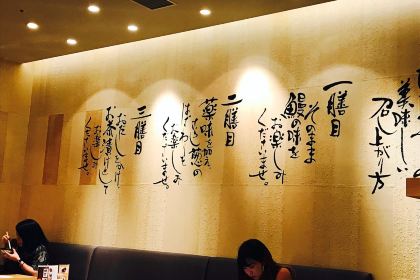 美味しい
召し上がり方
一膳目
そのまま
鰻の味を
お楽しみ
くださいませ。
二膳目
薬味を加え
お楽しみ
くださいませ。
三膳目
おだしをかけ
お茶漬けとして
お楽しみ
くださいませ。